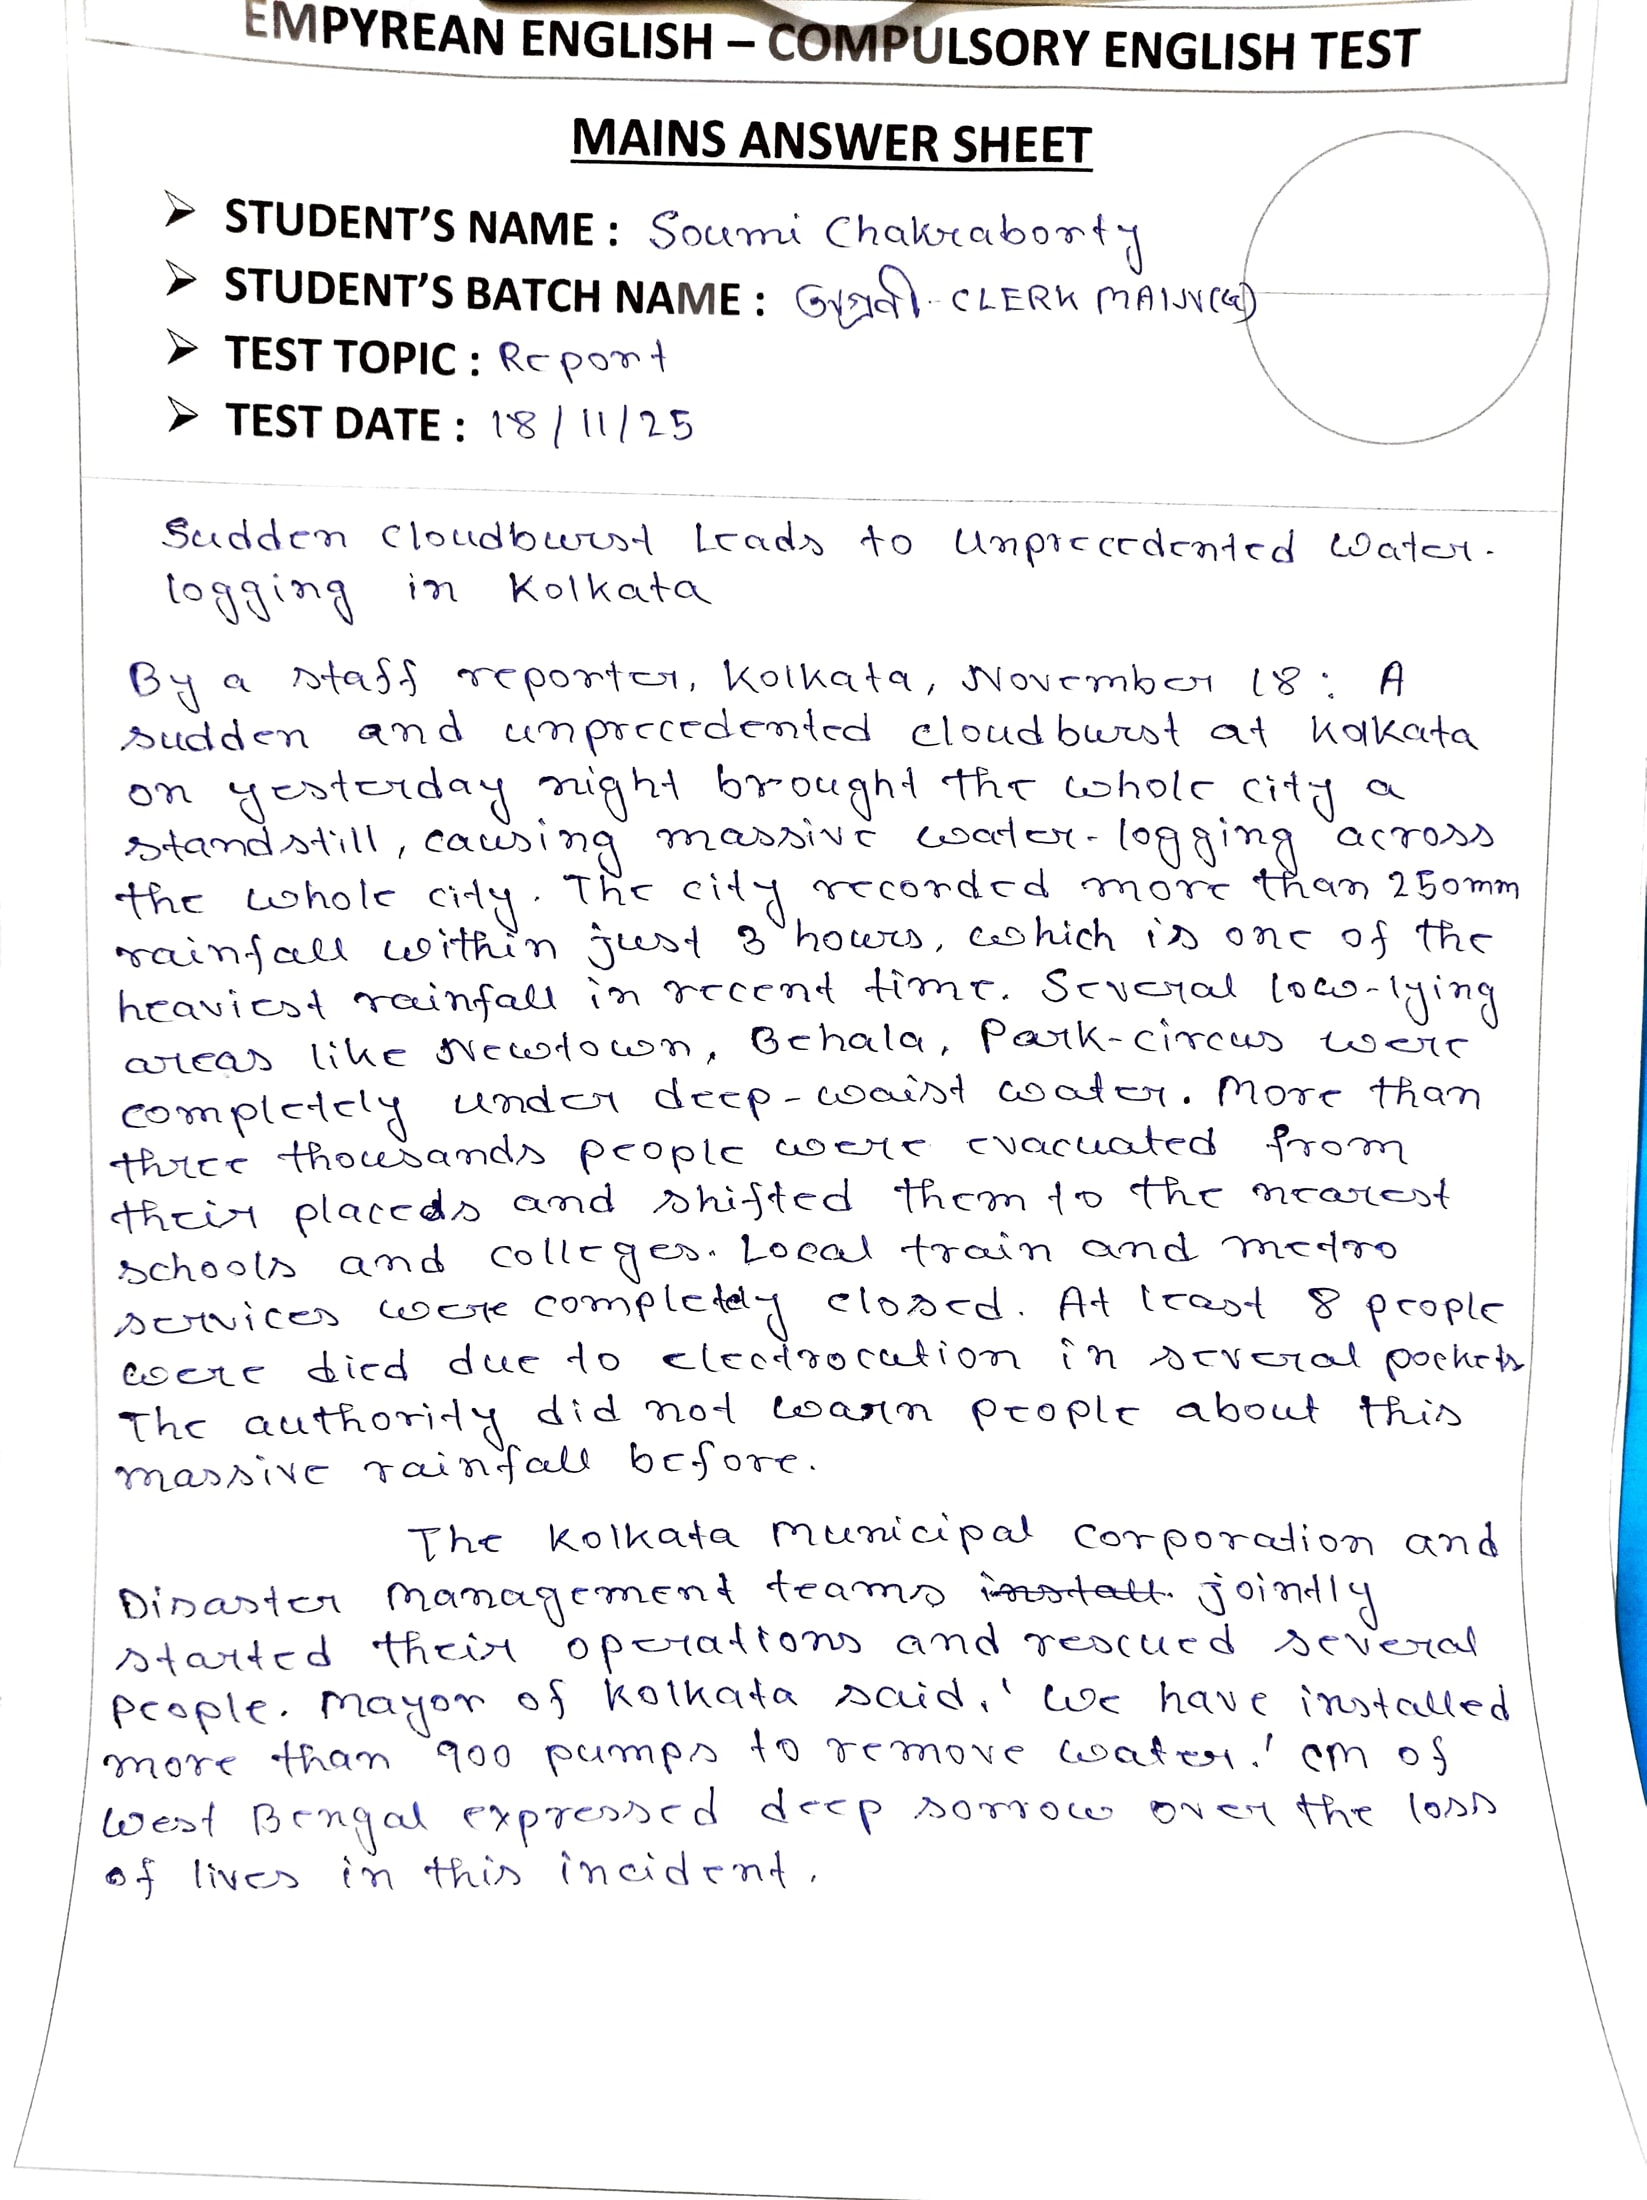 EMPYREAN ENGLISH – COMPULSORY ENGLISH TEST
MAINS ANSWER SHEET
➤ STUDENT'S NAME : Soumi Chakraborty
➤ STUDENT'S BATCH NAME : CLERK MAIN(G)
➤ TEST TOPIC : Report
➤ TEST DATE : 18/11/25
Sudden Cloudburst Leads to Unprecedented Water-
logging in Kolkata
By a staff reporter, Kolkata, November 18: A
sudden and unprecedented cloudburst at Kolkata
on yesterday night brought the whole city a
standstill, causing massive water-logging across
the whole city. The city recorded more than 250mm
rainfall within just 3 hours, which is one of the
heaviest rainfall in recent time. Several low-lying
areas like Newtown, Behala, Park-circus were
completely under deep-waist water. More than
three thousands people were evacuated from
their placeds and shifted them to the nearest
schools and colleges. Local train and metro
services were completely closed. At least 8 people
were died due to electrocution in several pockets
The authority did not warn people about this
massive rainfall before.
The Kolkata Municipal Corporation and
Disaster Management teams install. jointly
started their operations and rescued several
people. Mayor of Kolkata said, 'We have installed
more than 900 pumps to remove water.' CM of
West Bengal expressed deep sorrow over the loss
of lives in this incident.